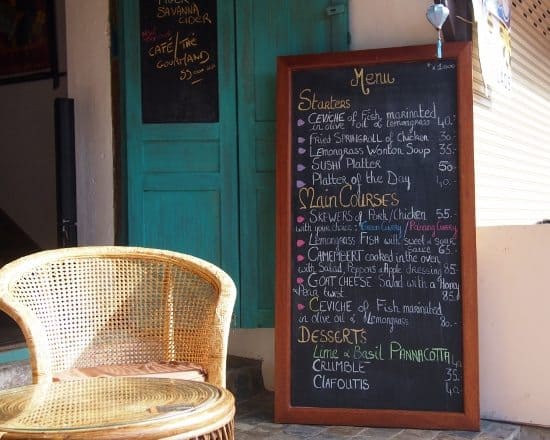 TIGER
SAVANNA
CIDER
CAFÉ/THÉ
GOURMAND
55000 KIP
Menu
x 1.000
Starters
CEVICHE of Fish marinated
in olive oil & Lemongrass 40.-
Fried SPRINGROLL of Chicken 30.-
LEMONGRASS Wonton Soup 35.-
SUSHI Platter 50
Platter of the Day 40.-
MAIN COURSES
SKEWERS of Pork/Chicken 55.-
with your choice: Green Curry / Panang Curry
Lemongrass FISH with sweet & sour
Sauce 65.-
CAMEMBERT cooked in the oven
with Salad, Peppers & Apple dressing 85.-
GOAT CHEESE Salad with a Honey
& Pear twist 85.-
CEVICHE of Fish marinated
in olive oil & Lemongrass 80.-
DESSERTS
Lime & Basil PANNACOTTA 40
CRUMBLE 35.-
CLAFOUTIS 40.-